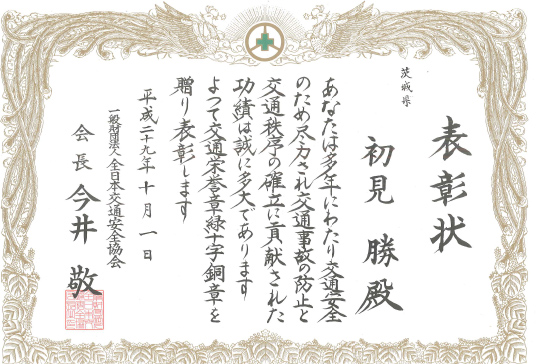 表彰状
茨城県
初見 勝殿
あなたは多年にわたり交通安全
のため尽力され交通事故の防止と
交通秩序の確立に貢献された
功績は誠に多大であります
よって交通栄誉章緑十字銅章を
贈り表彰します
平成二十九年十月一日
一般財団法人全日本交通安全協会
会長 今井 敬